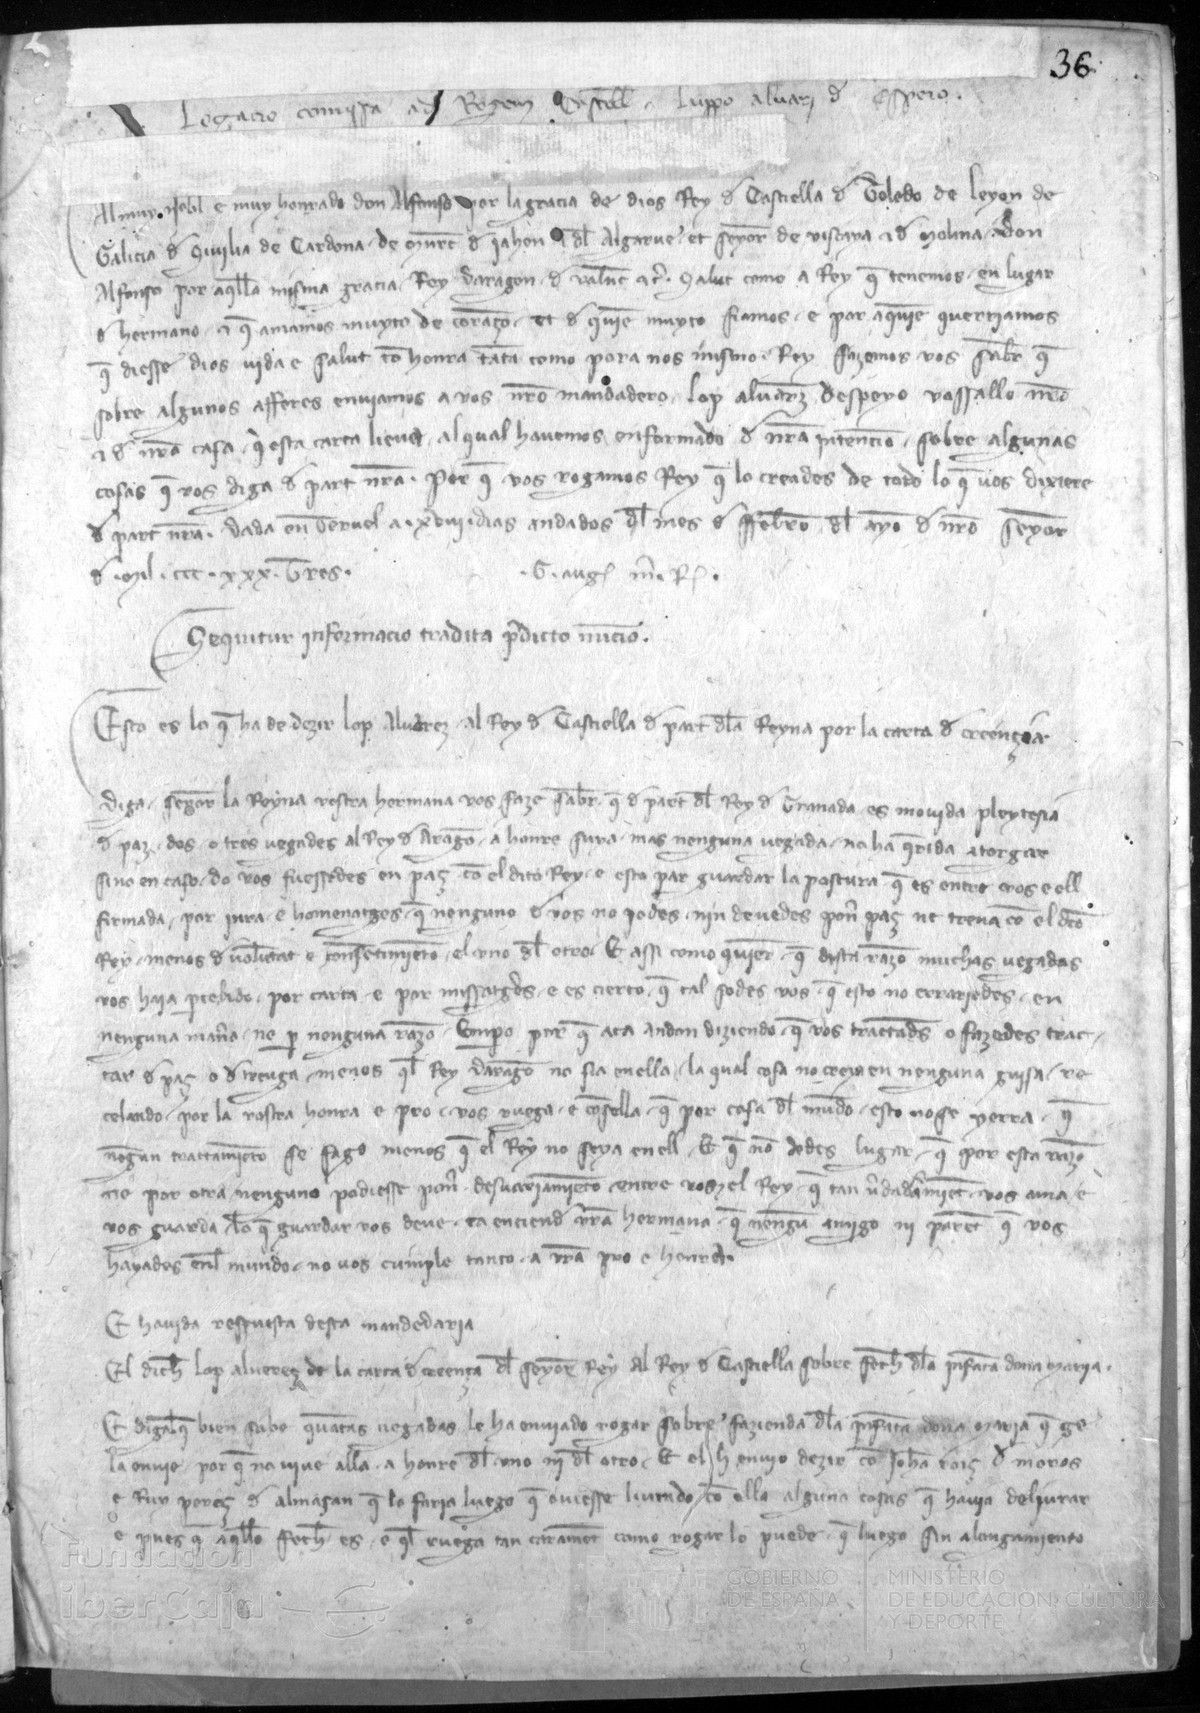 36
Legacio comissa ad Regem Castelle Luppo alvarz d Espeio.
Al muy nobl e muy honrado don Alfonso por la gracia de dios Rey d Castiella d Toledo de Leyon de
Galicia d Sivilia de Cordova de Murc d Jahen e dl Algarve et seyor de viscaya e d Molina don
Alfonso por aqlla misma gracia Rey daragon d valenc etc. Salut como a Rey q tenemos en lugar
d hermano e q amamos muyto de coraço et d quie muyto fiamos e por a quie querriamos
q diesse dios vida e salut co honra tata como pora nos mismo. Rey fazemos vos saber q
sobre algunos afferes enviamos a vos nro mandadero lop alvarz despeyo vassallo nro
e d nra casa q esta carta lieva al qual havemos enformado d nra intencio sobre algunas
cosas q vos diga d part nra. Por q vos rogamos Rey q lo creades de todo lo q vos dixiere
d part nra. Dada en Teruel a xviii dias andados dl mes d ffebro dl ayo d nro seyor
d Mil ccc xxx Tres. G. aug m. R.
Sequitur informacio tradita pdicto nuncio.
Esto es lo q ha de dezir lop Alvarez al Rey d Castiella d part dla Reyna por la carta d creença
Diga seyor la Reyna vostra hermana vos faze saber q d part dl Rey d Granada es movida pleytesia
d paz dos o tres vegades al Rey d Arago a honre suya mas nenguna vegada no ha qrida atorgar
sino en caso do vos fuessedes en paç co el dito Rey e esto par guardar la postura q es entre vos e ell
firmada por iura e homenatges q nenguno d vos no podes nin devedes pon paç ne treua co el dco
Rey menos d volutat e consetimieto el uno dl otro. E assi como quier q dista razo muchas vegadas
vos haia pcebido por carta e por missatgeros e es cierto q tal sodes vos q esto no errariedes en
nenguna mana ne p nenguna razo Empo por q aca andan diziendo q vos tractads o fazedes trac
tar d paç o d treuga menos ql Rey darago no sia en ella la qual cosa no creya en nenguna guisa re
celando por la vostra honra e pro vos ruega e cosella q por cosa dl mudo esto no se yerra q
negun tractamieto se faga menos q el Rey no seya en ell. E q no dodes lugar q por esta razo
ne por otra nenguno podiesse pon desvariamieto entre vos y el Rey q tan vdaderamiet vos ama e
vos guarda lo q guardar vos deve ca enciend vra hermana q nengu amigo ni paret q vos
hayades enl mundo no vos cumple tanto a vra pro e honra.
E havida respuesta desta mandaderia
El dich lop alvarez de la carta d creença dl seyor Rey al Rey d Castiella sobre fech dla infata dona maria.
E digalq bien sabe quatas vegadas le ha enviado rogar sobre fazienda dla infata dona Maria q ge
la envie por q no vive alla a honre dl uno ni dl otro. E el h envio dezir co Joha roiç d moros
e Ruy pereç d almaçan q lo faria luego q oviesse livrado co ella alguna cosas q havia deliurar
e pues q aqllo fech es e ql ruega tan carament como rogar lo puede q luego sin alongamiento
Fundación
iberCaja
GOBIERNO
DE ESPAÑA
MINISTERIO
DE EDUCACIÓN, CULTURA
Y DEPORTE